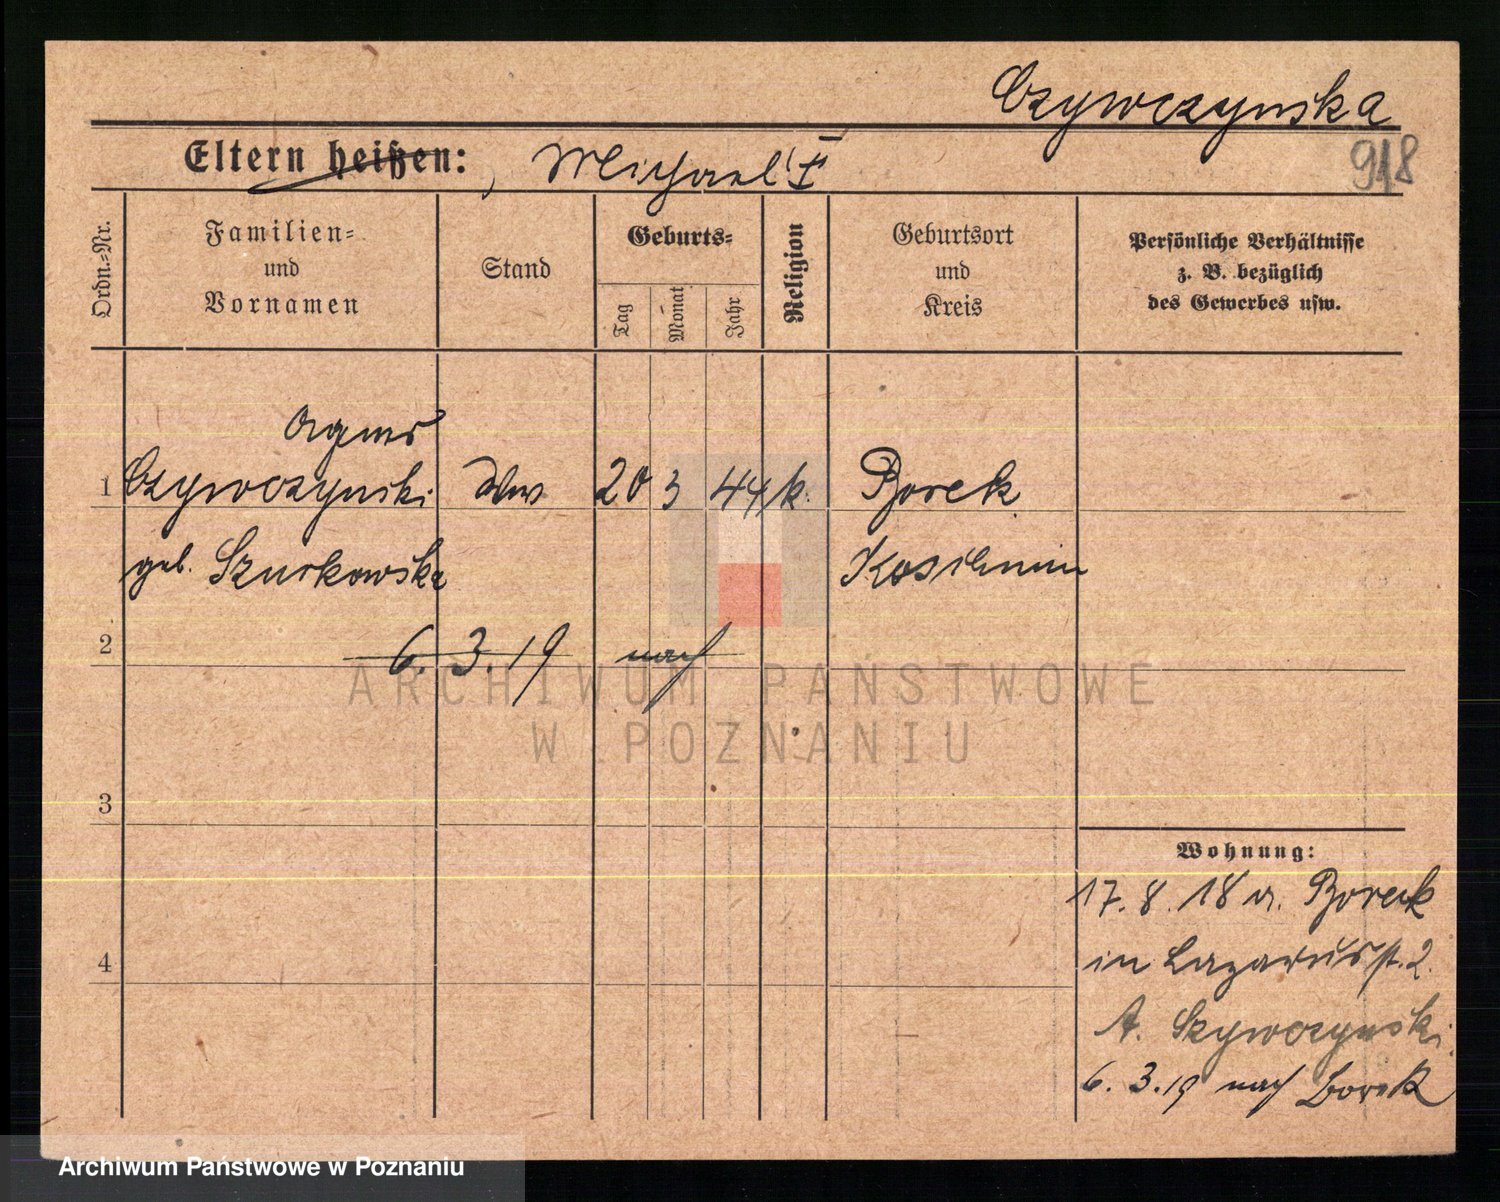 Czywczynska
Eltern heißen: Michael †
918
Ordn.-Nr.
Familien-
und
Vornamen
Stand
Geburts-
Tag
Monat
Jahr
Religion
Geburtsort
und
Kreis
Persönliche Verhältnisse
z. B. bezüglich
des Gewerbes usw.
Agnes
1 Czywczynski Ww 20 3 44 k. Borek
geb. Szurkowska Koschmin
2 6.3.19 nach
ARCHIWUM PAŃSTWOWE
W POZNANIU
3
Wohnung:
17.8.18 v. Boreck
4
in Lazarusst. 2.
A. Szywczynski.
6.3.19 nach Borek
Archiwum Państwowe w Poznaniu